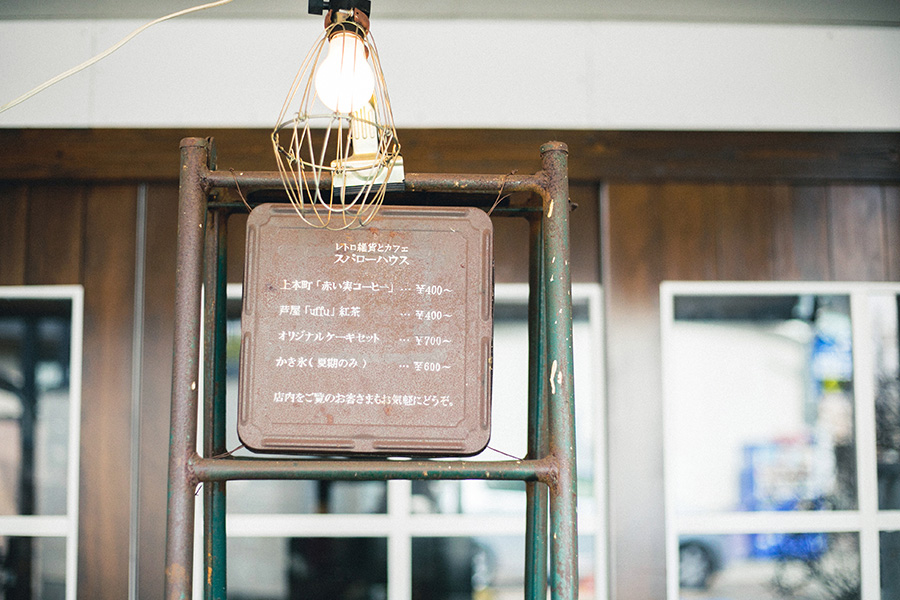 レトロ雑貨とカフェ
スパローハウス
上本町「赤い実コーヒー」 … ¥400〜
芦屋「uffu」紅茶 … ¥400〜
オリジナルケーキセット … ¥700〜
かき氷(夏期のみ) … ¥600〜
店内をご覧のお客さまもお気軽にどうぞ。